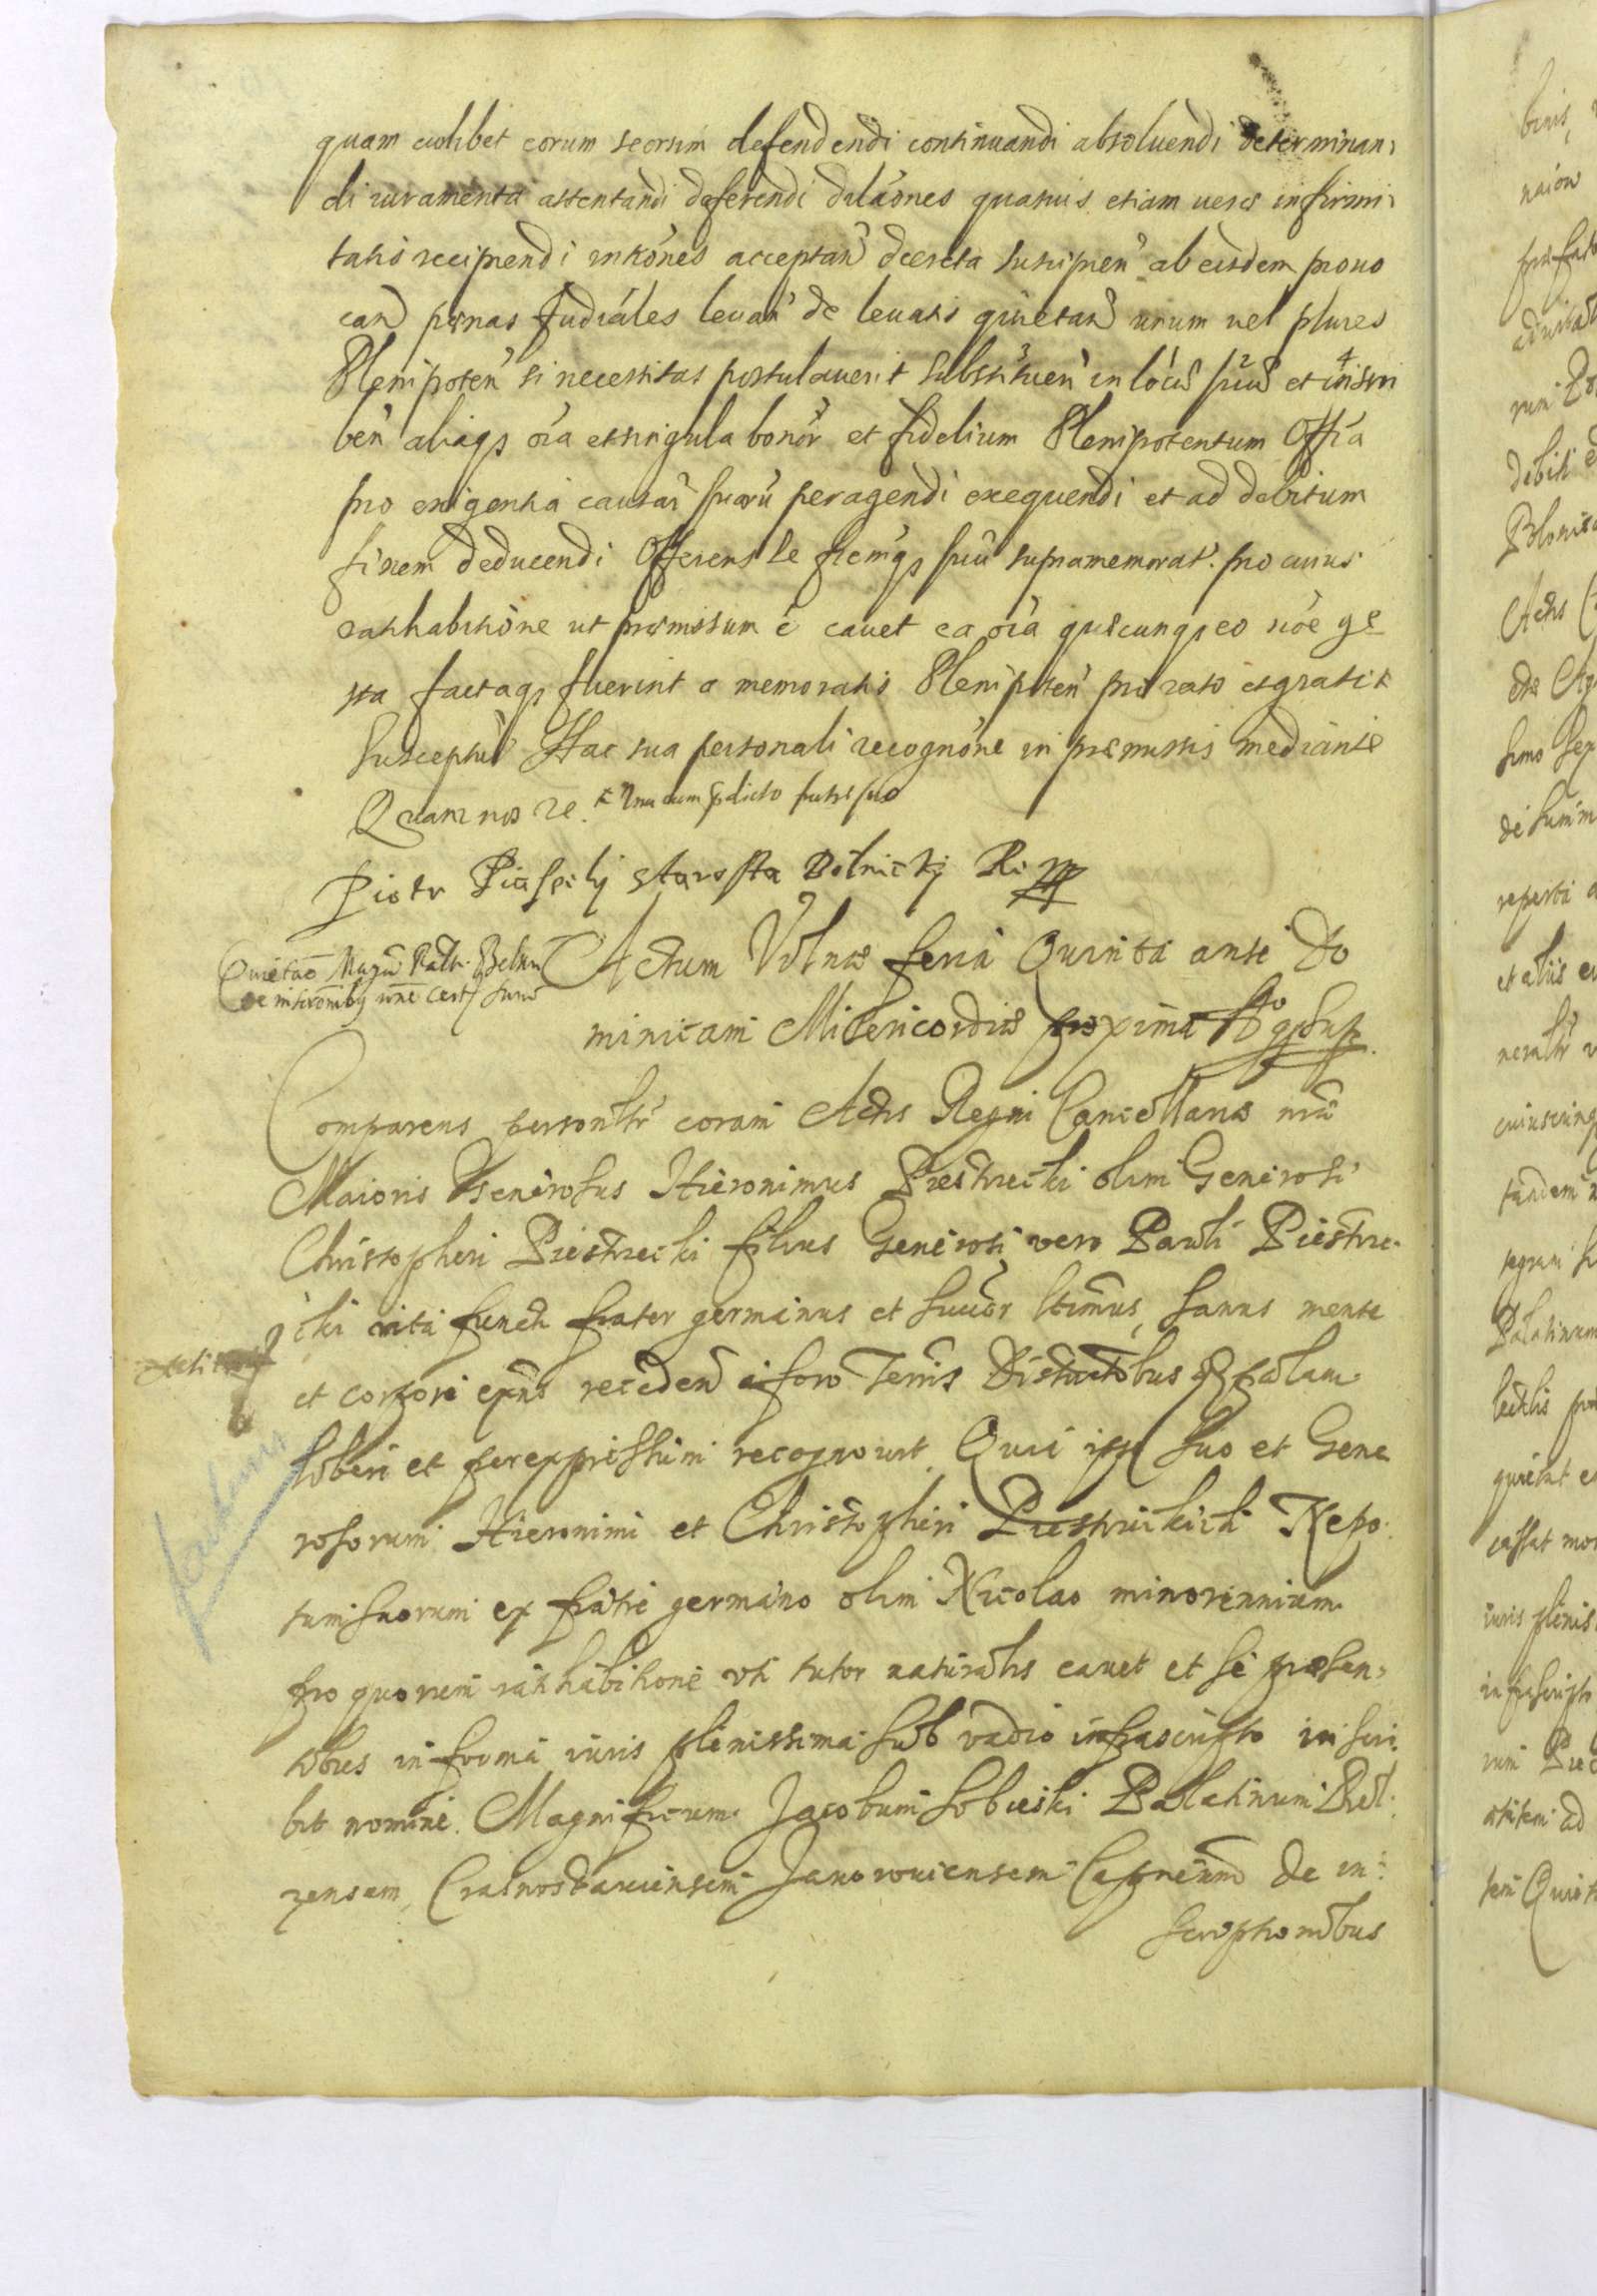 quam cuilibet eorum seorsim defendendi continuandi absoluendi determinan:
di iuramenta attentandi deferendi dilaones quasuis etiam verae infirmi:
tatis recipiendi inkones acceptan̄ decreta suscipien̄ ab eisdem prouo
can̄ poenas Judiales levan̄ de levatis quietan̄ unum vel plures
Plenipoten̄ si necessitas postulaverit substituen̄ in locū suū et
ben̄ aliaqȝ oīa et singula bonōr et fidelium Plenipotentum Offia
pro exigentia causar̄ suarū peragendi exequendi et ad debitum
finem deducendi Offerens se suū supramemorat. pro cuius
rathabitione ut praemissum ē cavet ea oīa quaecunqȝ eo nōe ge
sta factaqȝ fuerint a memoratis Plenipoten̄ pro rato et grato
Suscepturū Hac sua personali recognōne in praemissis mediante
Quam nos re. una cum praedicto fratre suo
Piotr starosta Ri
Quietaō Magcī Palt. Belzen
de inscrōnibȝ rōne cert. sum̄
Actum Vilnae feria Quinta ante Do
minicam Misericordiae proxima Aō
Comparens personlr̄ coram Actis Regni Cancellariae mā
Maioris Generosus Hieronimus Piestrzecki olim Generosi
Christopheri Piestrzecki filius Generosi vero Pauli Piestrze
cki vita functi frater germanus et succōr ltimus, sanus mente
et corpore exn̄s receden̄ a foro Terris Districtibus palam
liberi et per expressum recognouit. Quia ipse suo et Gene
rosorum Hieronimi et Christopheri Nepo
tum suorum ex fratre germano olim Nicolao minorennium
pro quorum rathabitione uti tutor naturalis cavet et se praesen
tibus in forma iuris plenissima sub vadio infrascripto inscri
bit nomine. Magnificum Jacobum Sobieski Palatinum Bel
zensem, Crasnostaviensem Janoroviensem Capneum̄ de in
scriptionibus